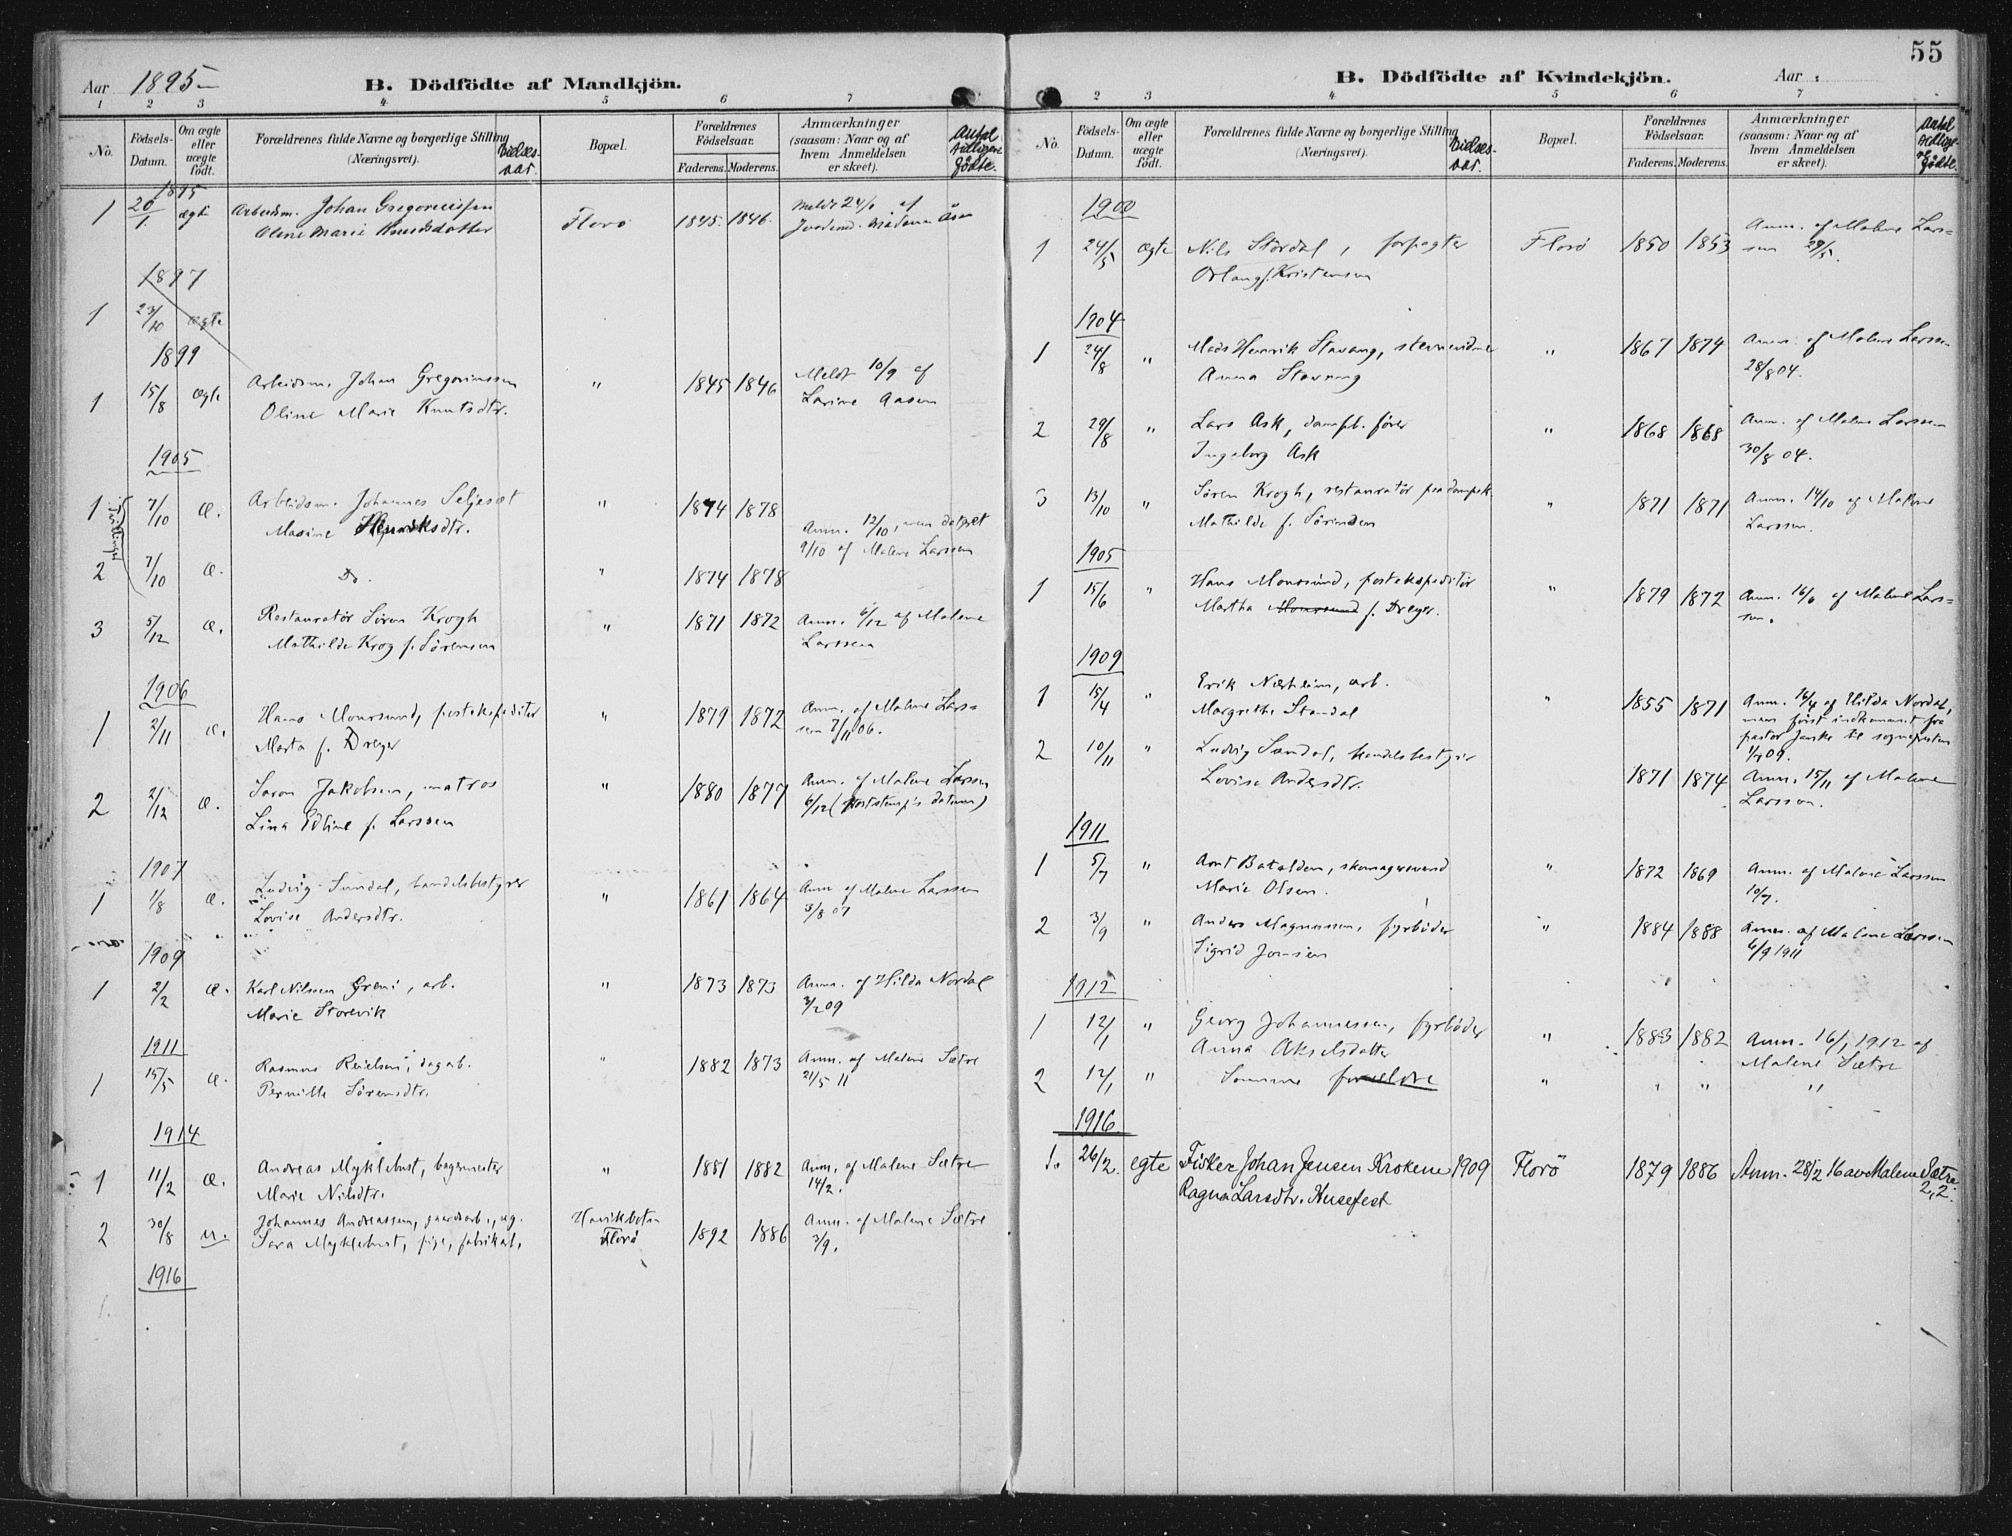 Aar 1895
B. Dödfödte af Mandkjön.
1 2 3 4 5 6 7
No.
Födsels-Datum.
Om ægte eller uægte født.
Forældrenes fulde Navne og borgerlige Stilling (Næringsvei).
Vielses-aar.
Bopæl.
Forældrenes Födselsaar.
Faderens. Moderens.
Anmærkninger (saasom: Naar og af hvem Anmeldelsen er skeet).
Antal tidligere fødte.
1895
1 20/1. ægte Arbeidsm. Johan Gregoriussen Florø 1845. 1846. Meldt 24/1 af
Oline Marie Knudsdatter Jordemd. Madame Åsen
1897
1 23/10 ægte
1899
1 15/8 ægte Arbeidsm. Johan Gregoriussen " 1845 1846 Meldt 10/9 af
Oline Marie Knutsdtr. Larine Aasen
1905
Tvillinger
1 7/10 æ. Arbeidsm. Johannes Seljeset " 1874 1878
Marine Henriksdtr. Anm. 12/10, men datert
9/10 af Malene Larssen
2 7/10 æ. Do. " 1874 1878
3 5/12 æ. Restauratør Søren Krogh " 1871 1872 Anm. 6/12 af Malene
Mathilde Krog f. Sørensen Larssen
1906
1 2/11 æ. Hans Monrsund, postekspeditør " 1879 1872 Anm. af Malene Lars=
Marta f. Dreyer sen 7/11 06.
2 2/12 æ. Saron Jakobsen, matros " 1880 1877 Anm. af Malene Larssen
Lina Edline f. Larssen 6/12 (poststemp's datum)
1907
1 1/8 æ. Ludvig Sundal, handelsbestyrer " 1861 1864 Anm af Malene Larssen
Lovise Andersdtr. 3/8 07
1909
1 2/2 æ. Karl Nilssen Greni, arb. " 1873 1873 Anm. af Hilda Nordal
Marie Storevik 3/2 09
1911
1 15/5 æ. Rasmus Reielsen, dagarb. " 1882 1873 Anm. af Malene Sætre
Pernille Sørensdtr. 21/5 11
1914
1 11/2 æ. Andreas Myklebust, bagermester " 1881 1882 Anm. af Malene Sætre
Marie Nilsdtr. 14/2.
2 30/8 u. Johannes Andreassen, gaardsarb., ug. Havikbotn 1892 1886 Anm. af Malene Sætre
Sara Myklebust, pige, fabrikarb. Florø 3/9.
1916
55
B. Dödfödte af Kvindekjön.
Aar
2 3 4 5 6 7
No.
Födsels-Datum.
Om ægte eller uægte födt.
Forældrenes fulde Navne og borgerlige Stilling (Næringsvei).
Vielses-aar.
Bopæl.
Forældrenes Födselsaar.
Faderens. Moderens.
Anmærkninger (saasom: Naar og af hvem Anmeldelsen er skeet).
Antal tidligere fødte.
1900
1 24/5 ægte Nils Stordal, forpagter Florø 1850 1853 Anm. af Malene Lars=
Kristensen sen 29/5.
1904
1 24/8 " Mads Henrik Stavang, " 1867 1874 Anm. af Malene Larssen
Anna Stavang 28/8 04.
2 29/8 " Lars Ask, dampsb. fører " 1868 1868 Anm. af Malene Larssen
Ingeborg Ask 30/8 04.
3 13/10 " Søren Krogh, restauratør paa dampsk. " 1871 1871 Anm. 14/10 af Malene
Mathilde f. Sørensen Larssen.
1905
1 15/6 " Hans Monrsund, postekspeditør " 1879 1872 Anm. 16/6 af Malene Lars=
Martha Monrsund f. Dreyer. sen.
1909
1 15/4 " Erik Næsheim, arb. " 1855 1871 Anm. 16/4 af Hilda Nordal,
Margrethe Standal men først indkommet fra
pastor Janske til sognepresten
09.
2 10/11 " Ludvig Sundal, handelsbestyrer 1871 1874 Anm. 15/11 af Malene
Lovise Andersdtr. Larssen.
1911
1 5/7 " Arnt Batalden, skomagersvend " 1872 1869 Anm. af Malene Larssen
Marie Olsen. 10/7.
2 3/9 " Anders Magnussen, fyrbøder " 1884 1888 Anm. af Malene Larssen
Sigrid Jonsen 6/9 1911
1912
1 12/1 " Georg Johannessen, fyrbøder " 1883 1882 Anm. 16/1 1912 af
Anna Akselsdatter Malene Sætre
2 12/1 " Samme forældre " " " "
1916.
1. 26/2. egte Fisker Johan Jensen Krokene 1909 Florö 1879 1886 Anm. 28/2 16 av Malene Sætre
Ragna Larsdtr. Husefest 2,2.